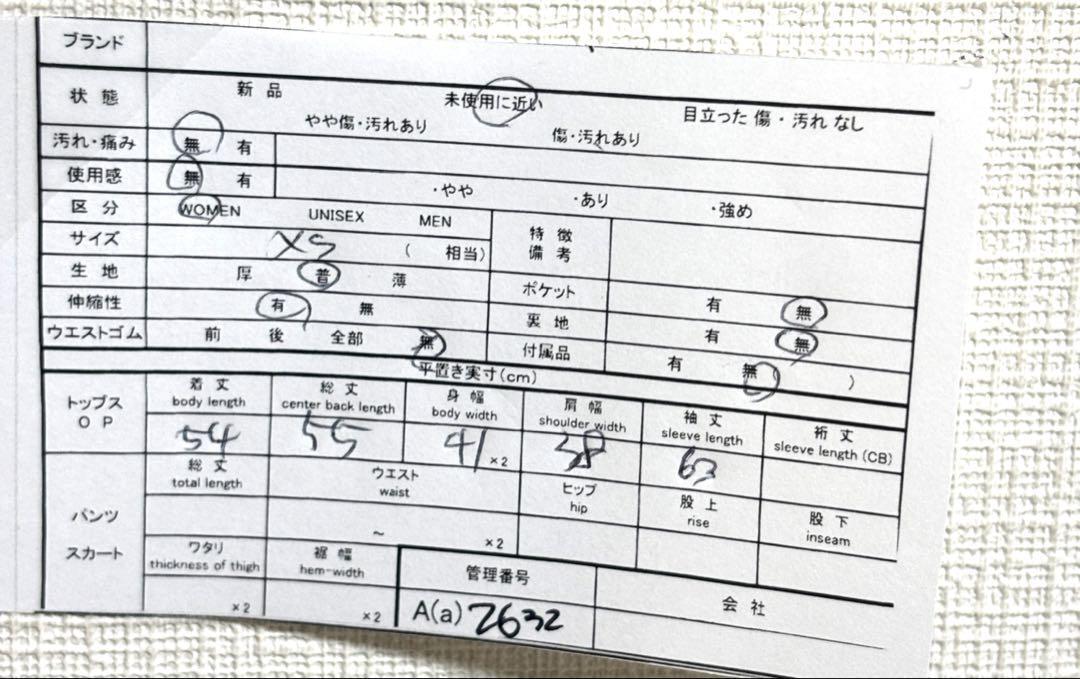 ブランド
状態 新品 未使用に近い 目立った傷・汚れなし
やや傷・汚れあり 傷・汚れあり
汚れ・痛み 無 有
使用感 無 有 ・やや ・あり ・強め
区分 WOMEN UNISEX MEN 特徴
サイズ XS ( 相当) 備考
生地 厚 普 薄 ポケット 有 無
伸縮性 有 無 裏地 有 無
ウエストゴム 前 後 全部 無 付属品 有 無 )
平置き実寸(cm)
トップス 着丈 総丈 身幅 肩幅 袖丈 裄丈
OP body length center back length body width shoulder width sleeve length sleeve length (CB)
54 55 41 ×2 38 63
総丈 ウエスト ヒップ 股上 股下
total length waist hip rise inseam
パンツ ~ ×2
スカート ワタリ 裾幅 管理番号 会社
thickness of thigh hem-width
×2 ×2 A(a) 2632